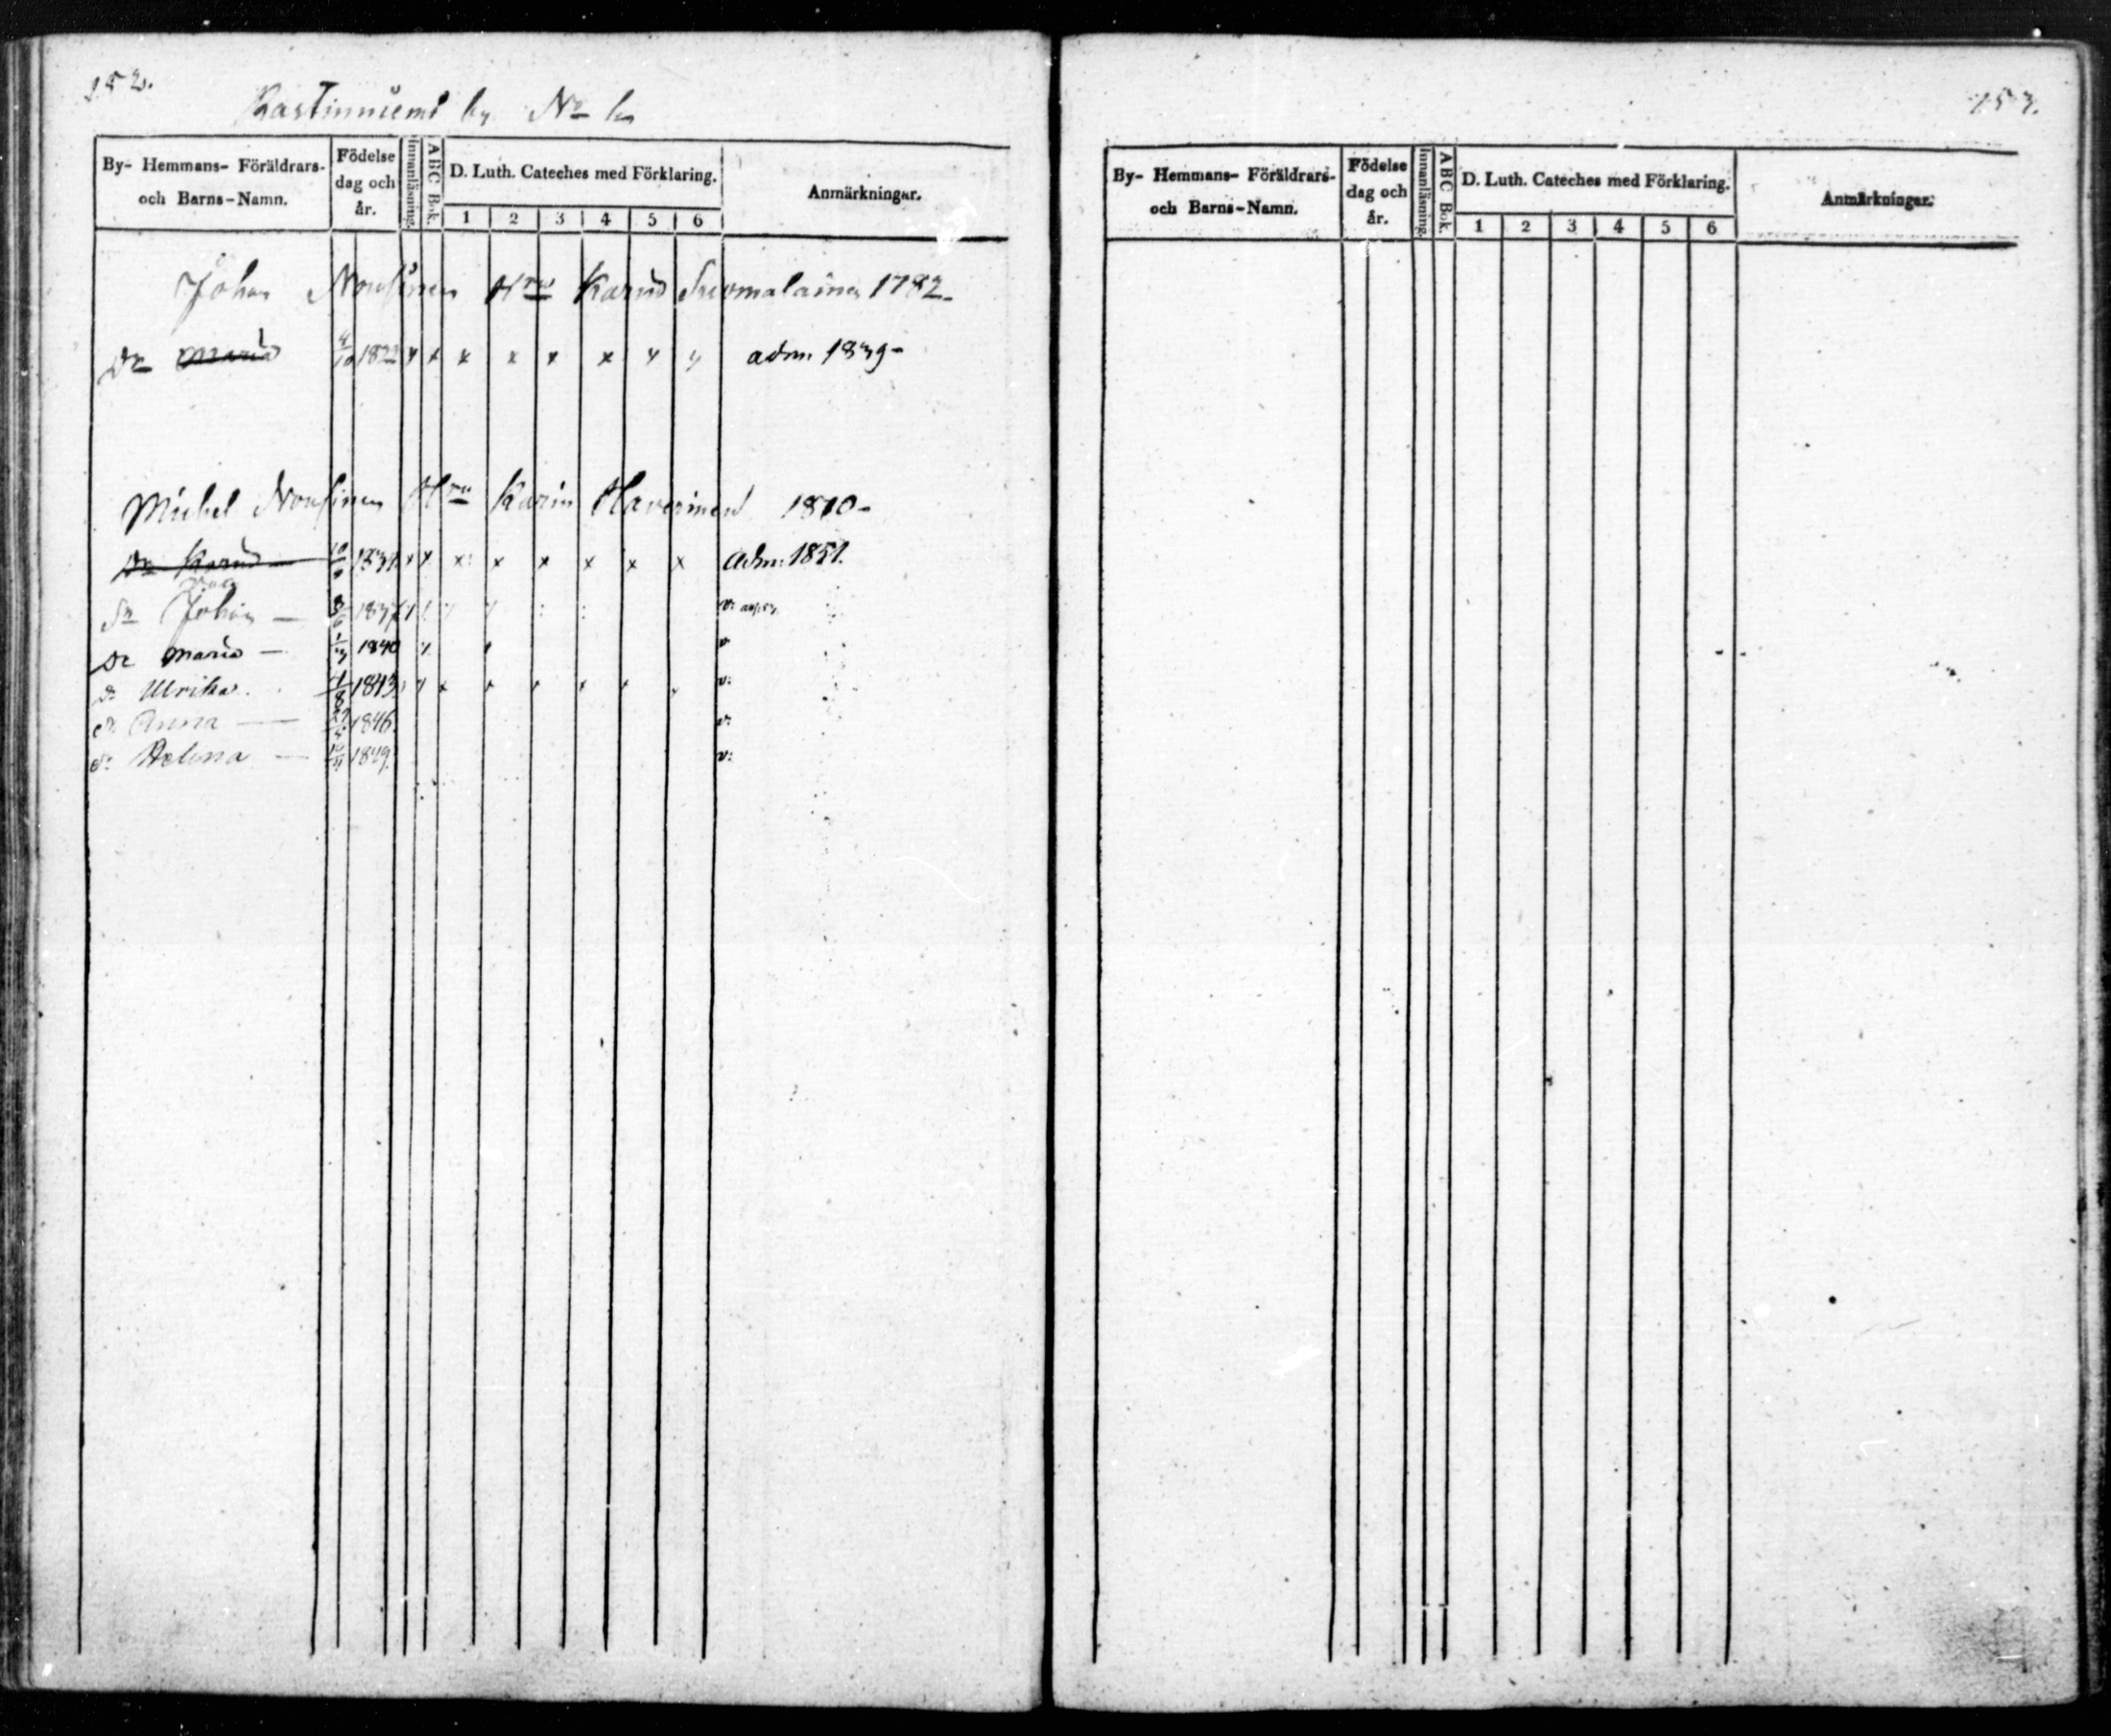 152.
Kastinniemi by No
By- Hemmans- Föräldrars- och Barns-Namn. Födelse dag och år. Innanläsning. ABC Bok. D. Luth. Cateches med Förklaring. Anmärkningar.
1 2 3 4 5 6
Johan Nousinen Hru Karin Suomalainen 1782-
Dr Maria 4/10 1822 x x x x x x x x adm. 1839-
Michel Nousinen Hru Karin Haverinen 1810-
Dr Karin 1834 x x x x x x x x adm. 1851.
Sn Johan — 1837 v:
Dr Maria — 1840 v
Dr Ulrika. 1/8 1843 v:
dr Anna — 1846. v:
dr Helena — 1849. v:
153.
By- Hemmans- Föräldrars- och Barns-Namn. Födelse dag och år. Innanläsning. ABC Bok. D. Luth. Cateches med Förklaring. Anmärkningar.
1 2 3 4 5 6